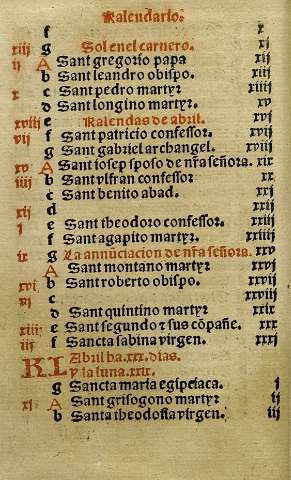 Kalendario.
f x
xiij g Sol en el carnero. xj
ij A Sant gregorio papa xij
b Sant leandro obispo. xiij
x c Sant pedro martyr xiiij
d Sant longino martyr. xv
xviij e Kalendas de abril. xvj
vij f Sant patricio confessor. xvij
g Sant gabriel archangel. xviij
xv A Sant iosep sposo de nr̃a señora. xix
iiij b Sant ylfran confessor xx
c Sant benito abad. xxj
xij d xxij
j e Sant theodoro confessor. xxiij
f Sant agapito martyr. xxiiij
ix g La annũciacion de nr̃a señora. xxv
A Sant montano martyr xxvj
xvj b Sant roberto obispo. xxvij
vj c xxviij
d Sant quintino martyr xxix
xiiij e Sant segundo ⁊ sus cõpañe. xxx
iij f Sancta sabina virgen. xxxj
KL Abril ha .xxx. dias.
y la luna .xxix.
g Sancta maria egipciaca. j
xj A Sant grisogono martyr ij
b Santa theodosia virgen. iij